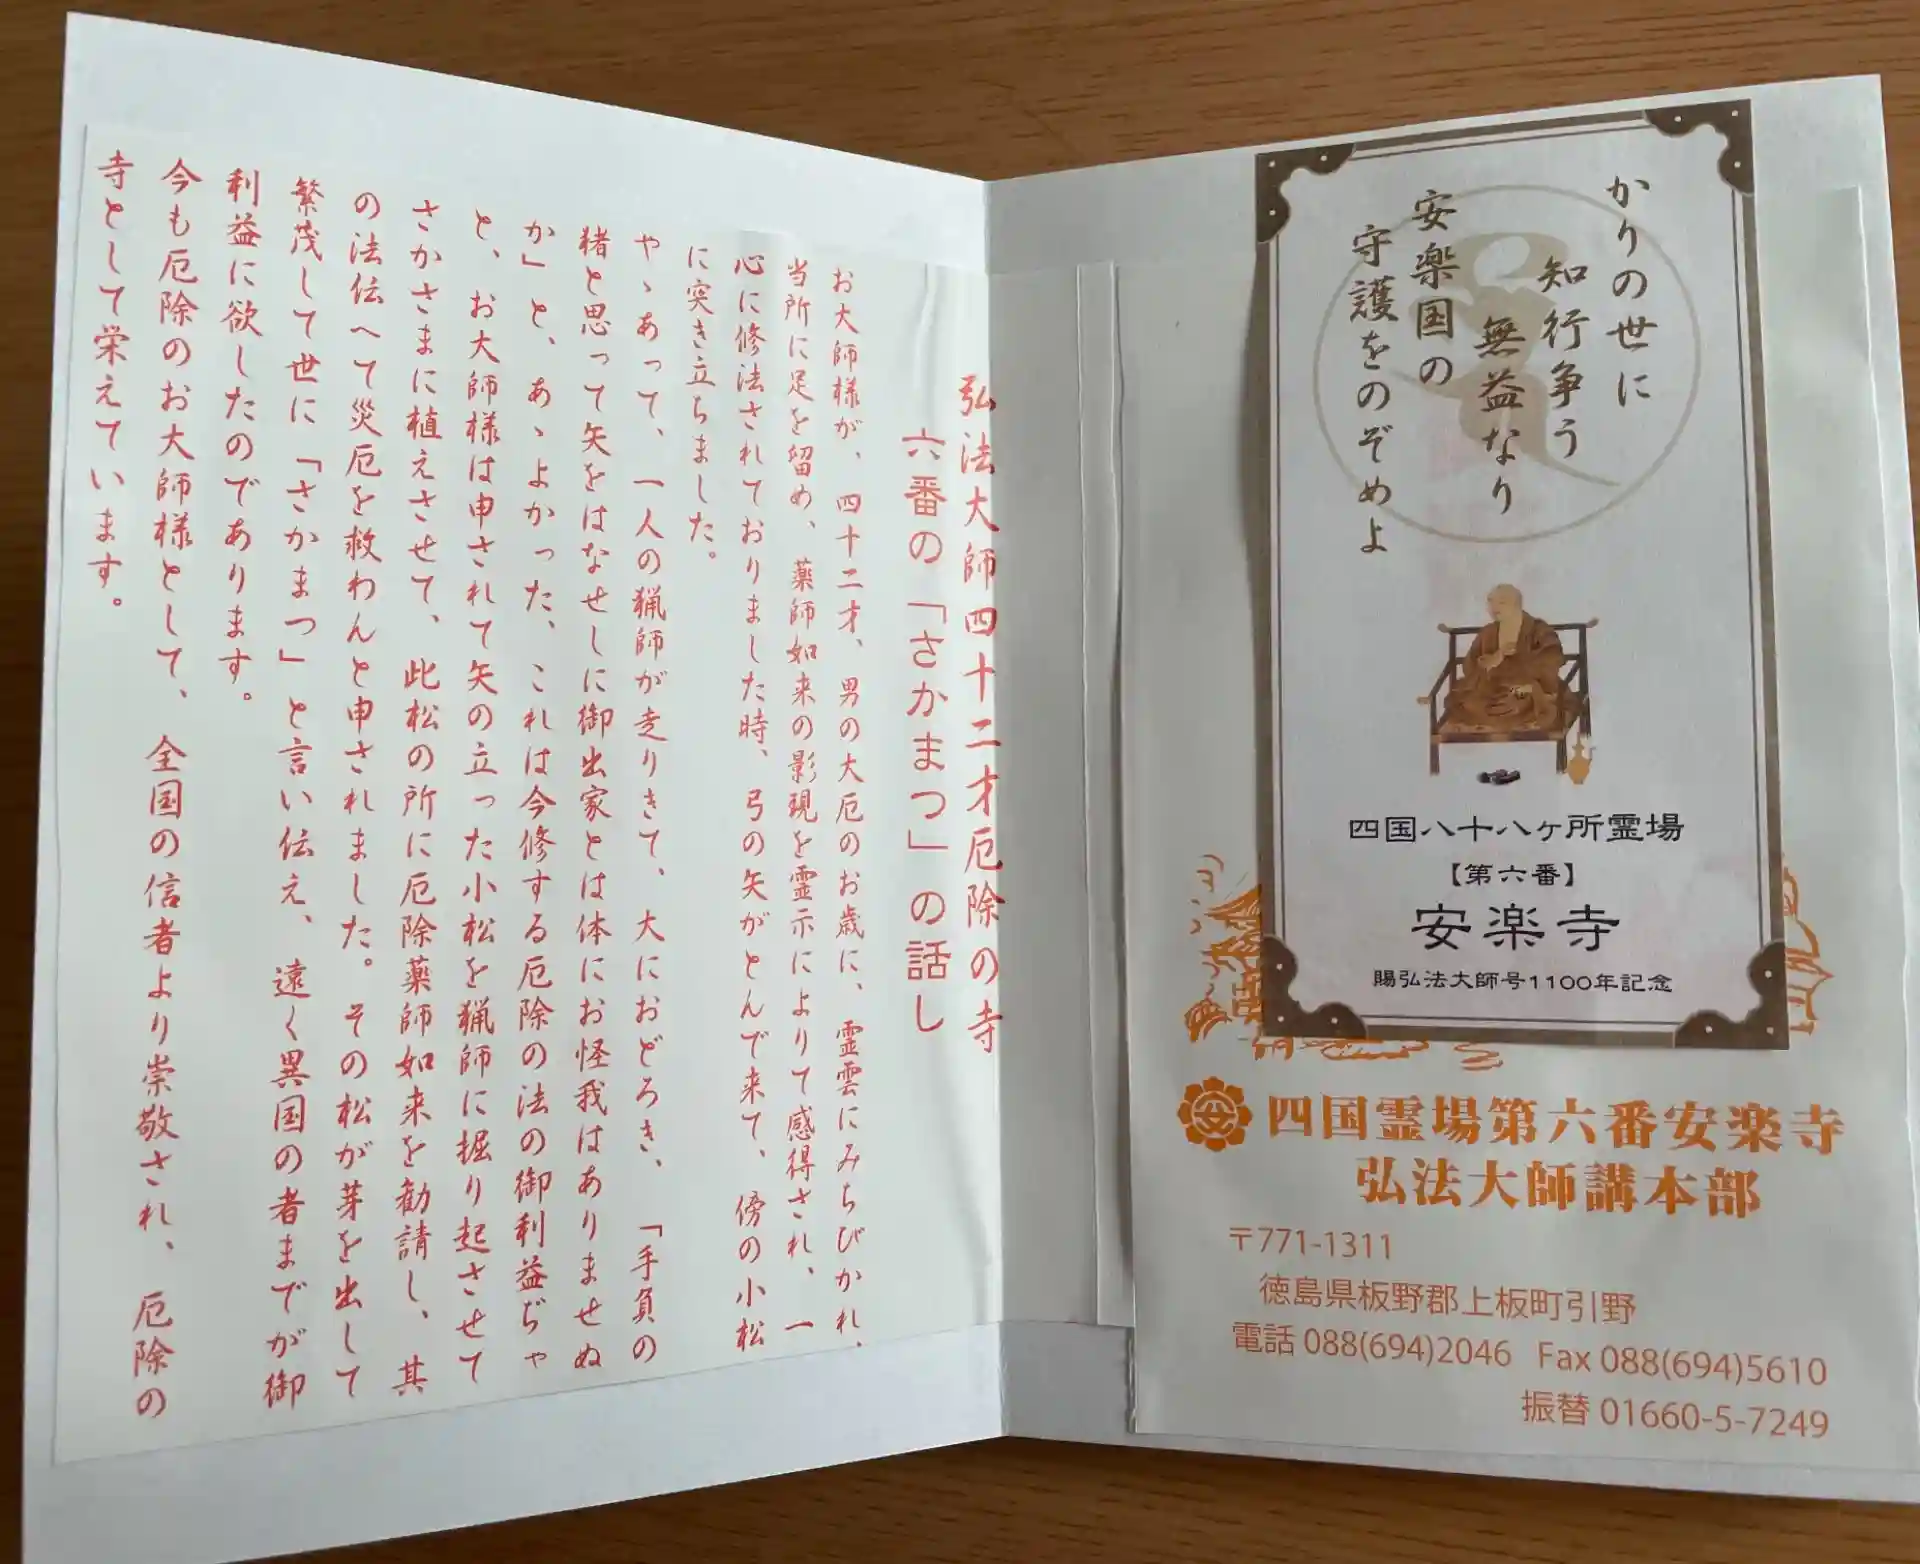 かりの世に
知行争う
無益なり
安楽国の
守護をのぞめよ
四国八十八ヶ所霊場
【第六番】
安楽寺
賜弘法大師号1100年記念
四国霊場第六番安楽寺
弘法大師講本部
〒771-1311
徳島県板野郡上板町引野
電話 088(694)2046 Fax 088(694)5610
振替 01660-5-7249
弘法大師四十二才厄除の寺
六番の「さかまつ」の話し
お大師様が、四十二才、男の大厄のお歳に、霊雲にみちびかれ、
当所に足を留め、薬師如来の影現を霊示によりて感得され、一
心に修法されておりました時、弓の矢がとんで来て、傍の小松
に突き立ちました。
やゝあって、一人の猟師が走りきて、大におどろき、「手負の
猪と思って矢をはなせしに御出家とは体にお怪我はありませぬ
か」と、あゝよかった、これは今修する厄除の法の御利益ぢゃ
と、お大師様は申されて矢の立った小松を猟師に掘り起させて
さかさまに植えさせて、此松の所に厄除薬師如来を勧請し、其
の法伝へて災厄を救わんと申されました。その松が芽を出して
繁茂して世に「さかまつ」と言い伝え、遠く異国の者までが御
利益に欲したのであります。
今も厄除のお大師様として、全国の信者より崇敬され、厄除の
寺として栄えています。